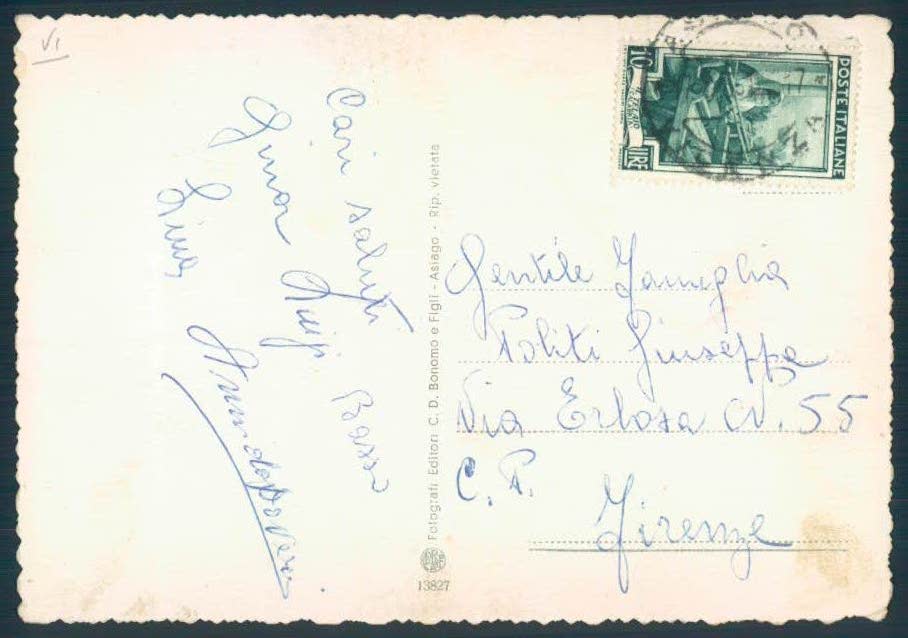 VI
Cari saluti
Gina Luigi Basso
Lina
Fotografi Editori C. D. Bonomo e Figli - Asiago - Rip. vietata
13827
POSTE ITALIANE
10
LIRE
Gentile Fameglia
Politi Giuseppe
Via Erbosa N. 55
C. P.
Firenze